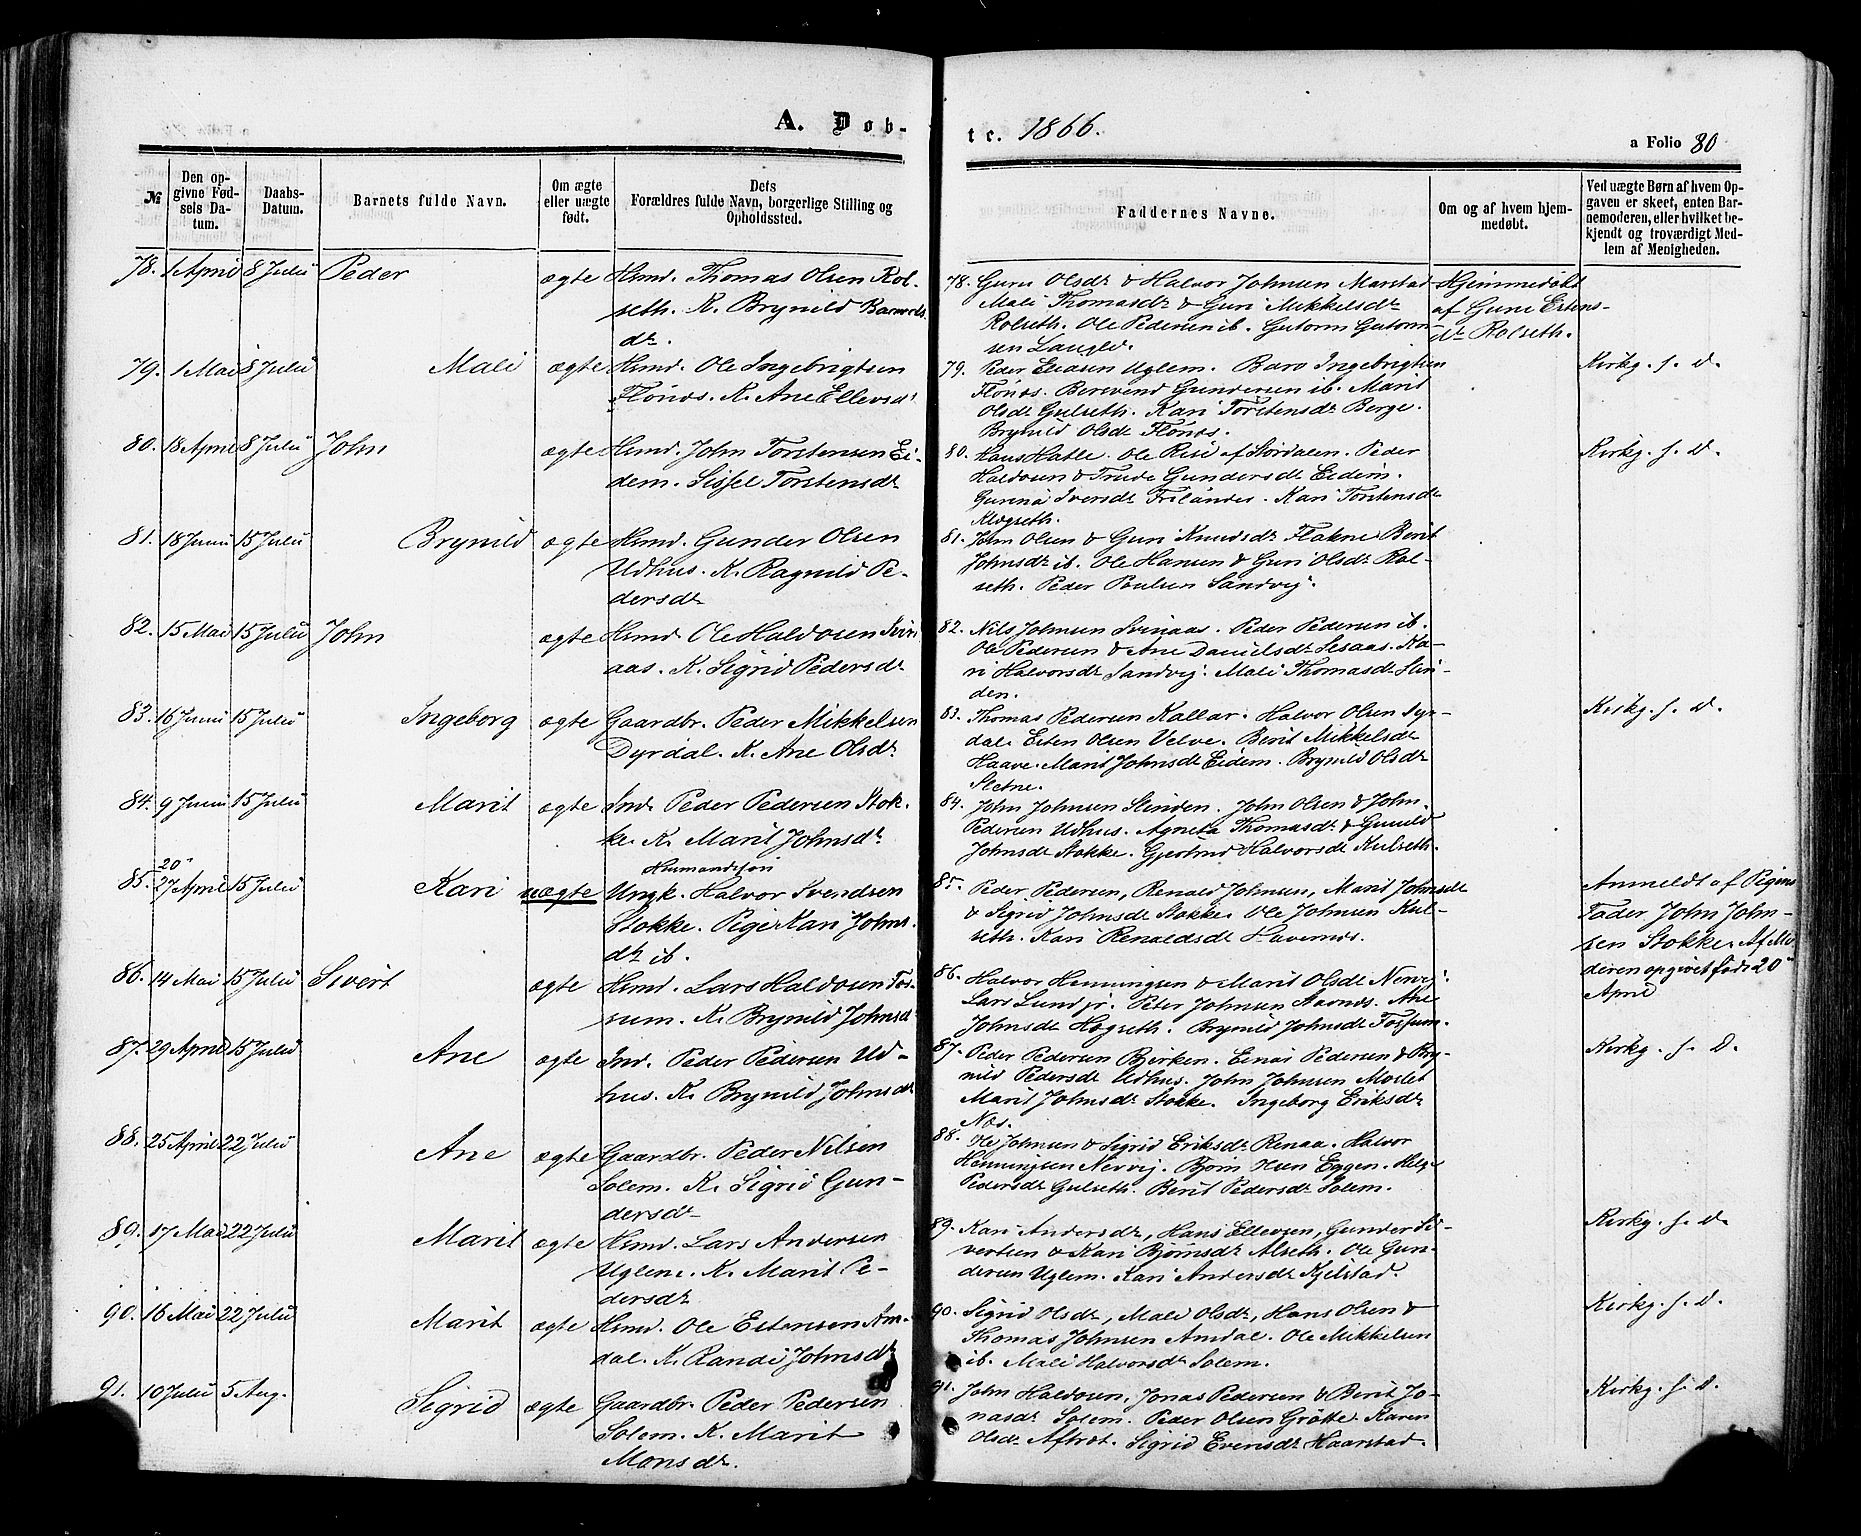 A. Døb-
te. 1866.
a Folio 80
№
Den op-
givne Fød-
sels Da-
tum.
Daabs-
Datum.
Barnets fulde Navn.
Om ægte
eller uægte
født.
Dets
Forældres fulde Navn, borgerlige Stilling og
Opholdssted.
Faddernes Navne.
Om og af hvem hjem-
medøbt.
Ved uægte Børn af hvem Op-
gaven er skeet, enten Bar-
nemoderen, eller hvilket be-
kjendt og troværdigt Med-
lem af Menigheden.
78. 1 April 8 Julii Peder ægte Hsmd. Thomas Olsen Rol-
seth. K. Brynild Barwols
dr.
78. Guru Olsdr & Halvor Johnsen Marstad
Mali Thomasdr & Guri Mikkelsdr
Rolseth. Ole Pedersen ib. Gutorm Gutorm-
sen Langld.
Hjemmedøbt
af Gune Estens-
dr Rolseth.
79. 1 Mai 8 Julii Mali ægte Hsmd. Ole Ingebrigtsen
Flönæs. K. Ane Ellevsdr
79. Peder Eliasen Uglem. Baro Ingebrigtsen
Flönæs. Berwend Gundersen ib. Marit
Olsdr Gulseth. Kari Torstensdr Berge.
Brynild Olsdr Flönæs.
Kirkg. s. D.
80. 18 April 8 Julii John ægte Hsmd. John Torstensen Ei-
dem. Sissel Torstensdr
80. Hans Hatle. Ole Risé af Stördalen. Peder
Haldosen & Trude Gundersdr Eidem.
Gurina Iversdr Frslandes. Kari Torstensdr
Klegseth.
Kirkg. s. D.
81. 18 Junii 15 Julii Brynild ægte Hsmd. Gunder Olsen
Udhus. K. Ragnild Pe-
dersdr
81. John Olsen & Guri Knudsdr Flakne Berit
Johnsdr ib. Ole Hansen & Guri Olsdr Rol-
seth. Peder Poulsen Sandvig.
82. 15 Mai 15 Julii John ægte Hsmd. Ole Haldosen Svin-
aas. K. Sigrid Pedersdr
82. Nils Johnsen Svinaas. Peder Pedersen ib.
Ole Pedersen & Ane Danielsdr Sesaas. Ka-
ri Halvorsdr Sandvig. Mali Thomasdr Slin-
den.
83. 16 Junii 15 Julii Ingeborg ægte Gaardbr. Peder Mikkelsen
Dyrdal. K. Ane Olsdr
83. Thomas Pedersen Kallar. Halvor Olsen Dyr-
dal. Esten Olsen Velve. Berit Mikkelsdr
Haave. Marit Johnsdr Eidem. Brynild Olsdr
Sletne.
Kirkg. s. D.
84. 9 Junii 15 Julii Marit ægte Ind. Peder Pedersen Stok-
ke. K. Marit Johnsdr
84. John Johnsen Slinden. John Olsen & John
Pedersen Udhus. Agneta Thomasdr & Gunild
Johnsdr Stokke. Gjertrud Halvorsdr Kulseth.
20"
85. 27 April 15 Julii Kari uægte
Husmandssön
Ungk. Halvor Svendsen
Stokke. Pige Kari Johns-
dr ib.
85. Peder Pedersen, Renald Johnsen, Marit Johnsdr
& Sigrid Johnsdr Stokke. Ole Johnsen Kul-
seth. Kari Renaldsdr Havernæs.
Anmeldt af Pigens
Fader John John-
sen Stokke. Af Mo-
deren opgivet föd: 20"
April
86. 14 Mai 15 Julii Sivert ægte Hsmd. Lars Haldosen Fos-
sum. K. Brynild Johnsdr
86. Halvor Henningsen & Marit Olsdr Nervig.
Lars Lund jr. Peter Johnsen Aavnæs. Ane
Johnsdr Hogseth. Brynild Johnsdr Fossum.
87. 29 April 15 Julii Ane ægte Ind. Peder Pedersen Ud-
hus. K. Brynild Johnsdr
87. Peder Pedersen Birken. Einar Pedersen & Bry-
nild Pedersdr Udhus. John Johnsen Moslet
Marit Johnsdr Stokke. Ingeborg Eriksdr
Næs.
Kirkg. s. D.
88. 25 April 22 Julii Ane ægte Gaardbr. Peder Nilsen
Solem. K. Sigrid Gun-
dersdr
88. Ole Johnsen & Sigrid Eriksdr Renaa. Halvor
Henningsen Nervig. Björn Iversen Eggen. Helge
Pedersdr Gulseth. Berit Pedersdr Solem.
89. 17 Mai 22 Julii Marit ægte Hsmd. Lars Andersen
Uglem. K. Marit Pe-
dersdr
89. Kari Andersdr, Hans Ellevsen, Gunder Si-
vertsen & Kari Björnsdr Alseth. Ole Gun-
dersen Uglem. Kari Andersdr Kjelstad.
Kirkg. s. D.
90. 16 Mai 22 Julii Marit ægte Hsmd. Ole Estensen Am-
dal. K. Randi Johnsdr
90. Sigrid Olsdr, Mali Olsdr, Hans Olsen &
Thomas Johnsen Amdal. Ole Mikkelsen
ib. Mali Halvorsdr Solem.
Kirkg. s. D.
91. 10 Julii 5 Aug. Sigrid ægte Gaardbr. Peder Pedersen
Solem. K. Marit
Monsdr.
91. John Haldosen, Jonas Pedersen & Berit Jo-
nasdr Solem. Peder Olsen Grötte. Karen
Olsdr Aftret. Sigrid Evensdr Haarstad.
Kirkg. s. D.